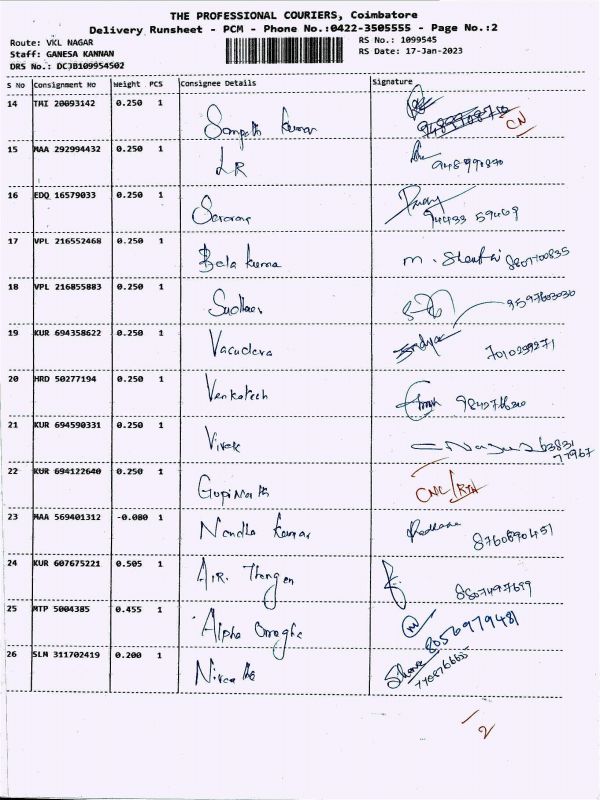 THE PROFESSIONAL COURIERS, Coimbatore
Delivery Runsheet - PCM - Phone No.:0422-3505555 - Page No.:2
Route: VKL NAGAR
RS No.: 1099545
Staff: GANESA KANNAN
RS Date: 17-Jan-2023
DRS No.: DCJB109954502
S No Consignment No Weight PCS Consignee Details Signature
14 TMI 20093142 0.250 1 Sampath Kumar CN
15 MAA 292994432 0.250 1 LR
16 EDQ 16579033 0.250 1 94433 59469
17 VPL 216552468 0.250 1 Bela Kumar M.
18 VPL 216855883 0.250 1 9597603030
19 KUR 694358622 0.250 1 Vasudeva 7010299271
20 HRD 50277194 0.250 1 Venkatesh
21 KUR 694590331 0.250 1 Vivek 63831
77967
22 KUR 694122640 0.250 1 Gopinath CNC/RTN
23 MAA 569401312 -0.080 1 Nandha Kumar 8760890451
24 KUR 607675221 0.505 1 AIR. 8807497699
25 MTP 5004385 0.455 1 Alpha 8056979481
26 SLM 311702419 0.200 1
2